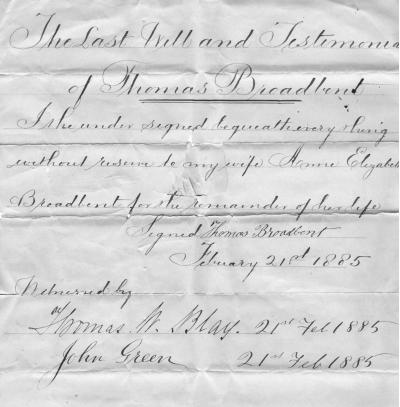 The Last Will and Testimonia
of Thomas Broadbent
I the under signed bequeath every thing
without reserve to my wife Anne Elizabeth
Broadbent for the remainder of her life
Signed Thomas Broadbent
February 21st 1885
Witnessed by
Thomas W. Blay. 21st Feb 1885
John Green 21st Feb 1885